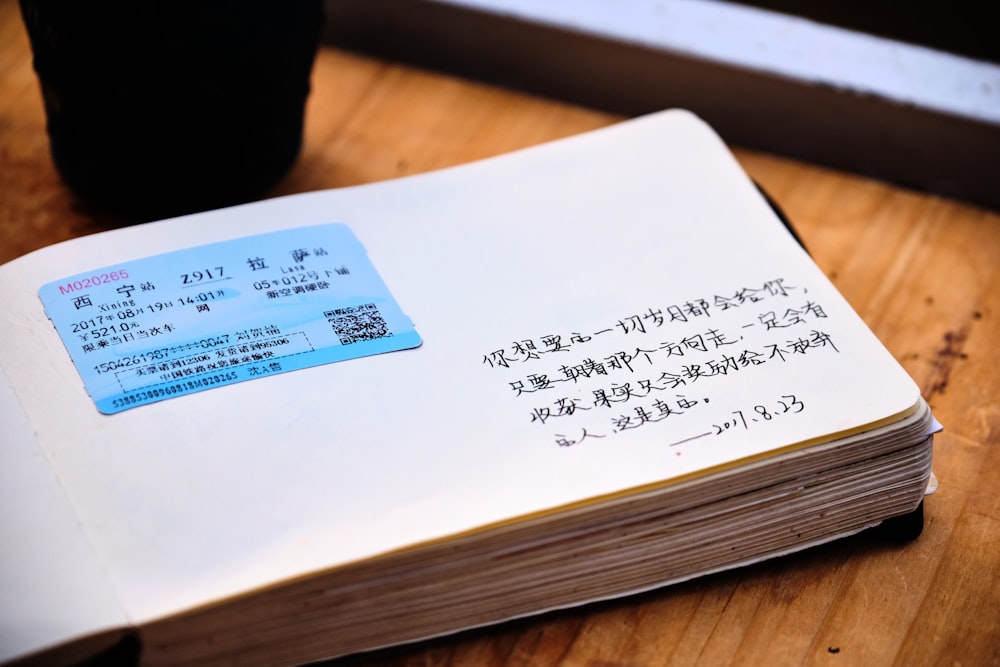 M020265
西宁站 Z917 拉萨站
Xining Lasa
2017年08月19日 14:01开 05车012号下铺
￥521.0元 网 新空调硬卧
限乘当日当次车
1504261987****0047
买票请到12306 发货请到95306
中国铁路祝您旅途愉快
53885300960818M020265 沈A售
你想要的一切岁月都会给你，
只要朝着那个方向走，一定会有
收获。果实只会奖励给不放弃
的人，这是真的。
——2017.8.23